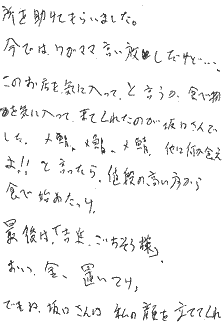 所を助けてもらいました。
今では、ワガママ言い放しだけど…、
このお店を気に入って、と言うか、食べ物
を気に入って、来てくれたのが坂口さんで
した。〆鯖、〆鯖、〆鯖、他は何が食え
ま!!と言ったら、値段の高い方から
食べ始めたっけ。
最後は、「吉兆、ごちそう様」
おい、金、置いてけ。
でもね、坂口さんは私の顔を立ててくれ